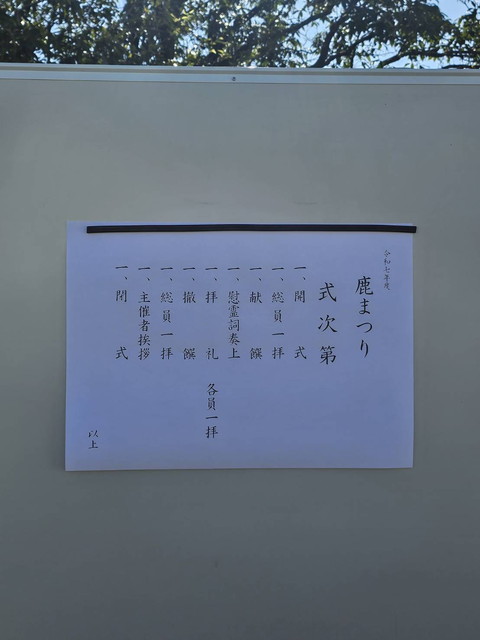 令和七年度
鹿まつり
式次第
一、開　式
一、総員一拝
一、献　饌
一、慰霊詞奏上
一、拝　礼　各員一拝
一、撤　饌
一、総員一拝
一、主催者挨拶
一、閉　式
以上